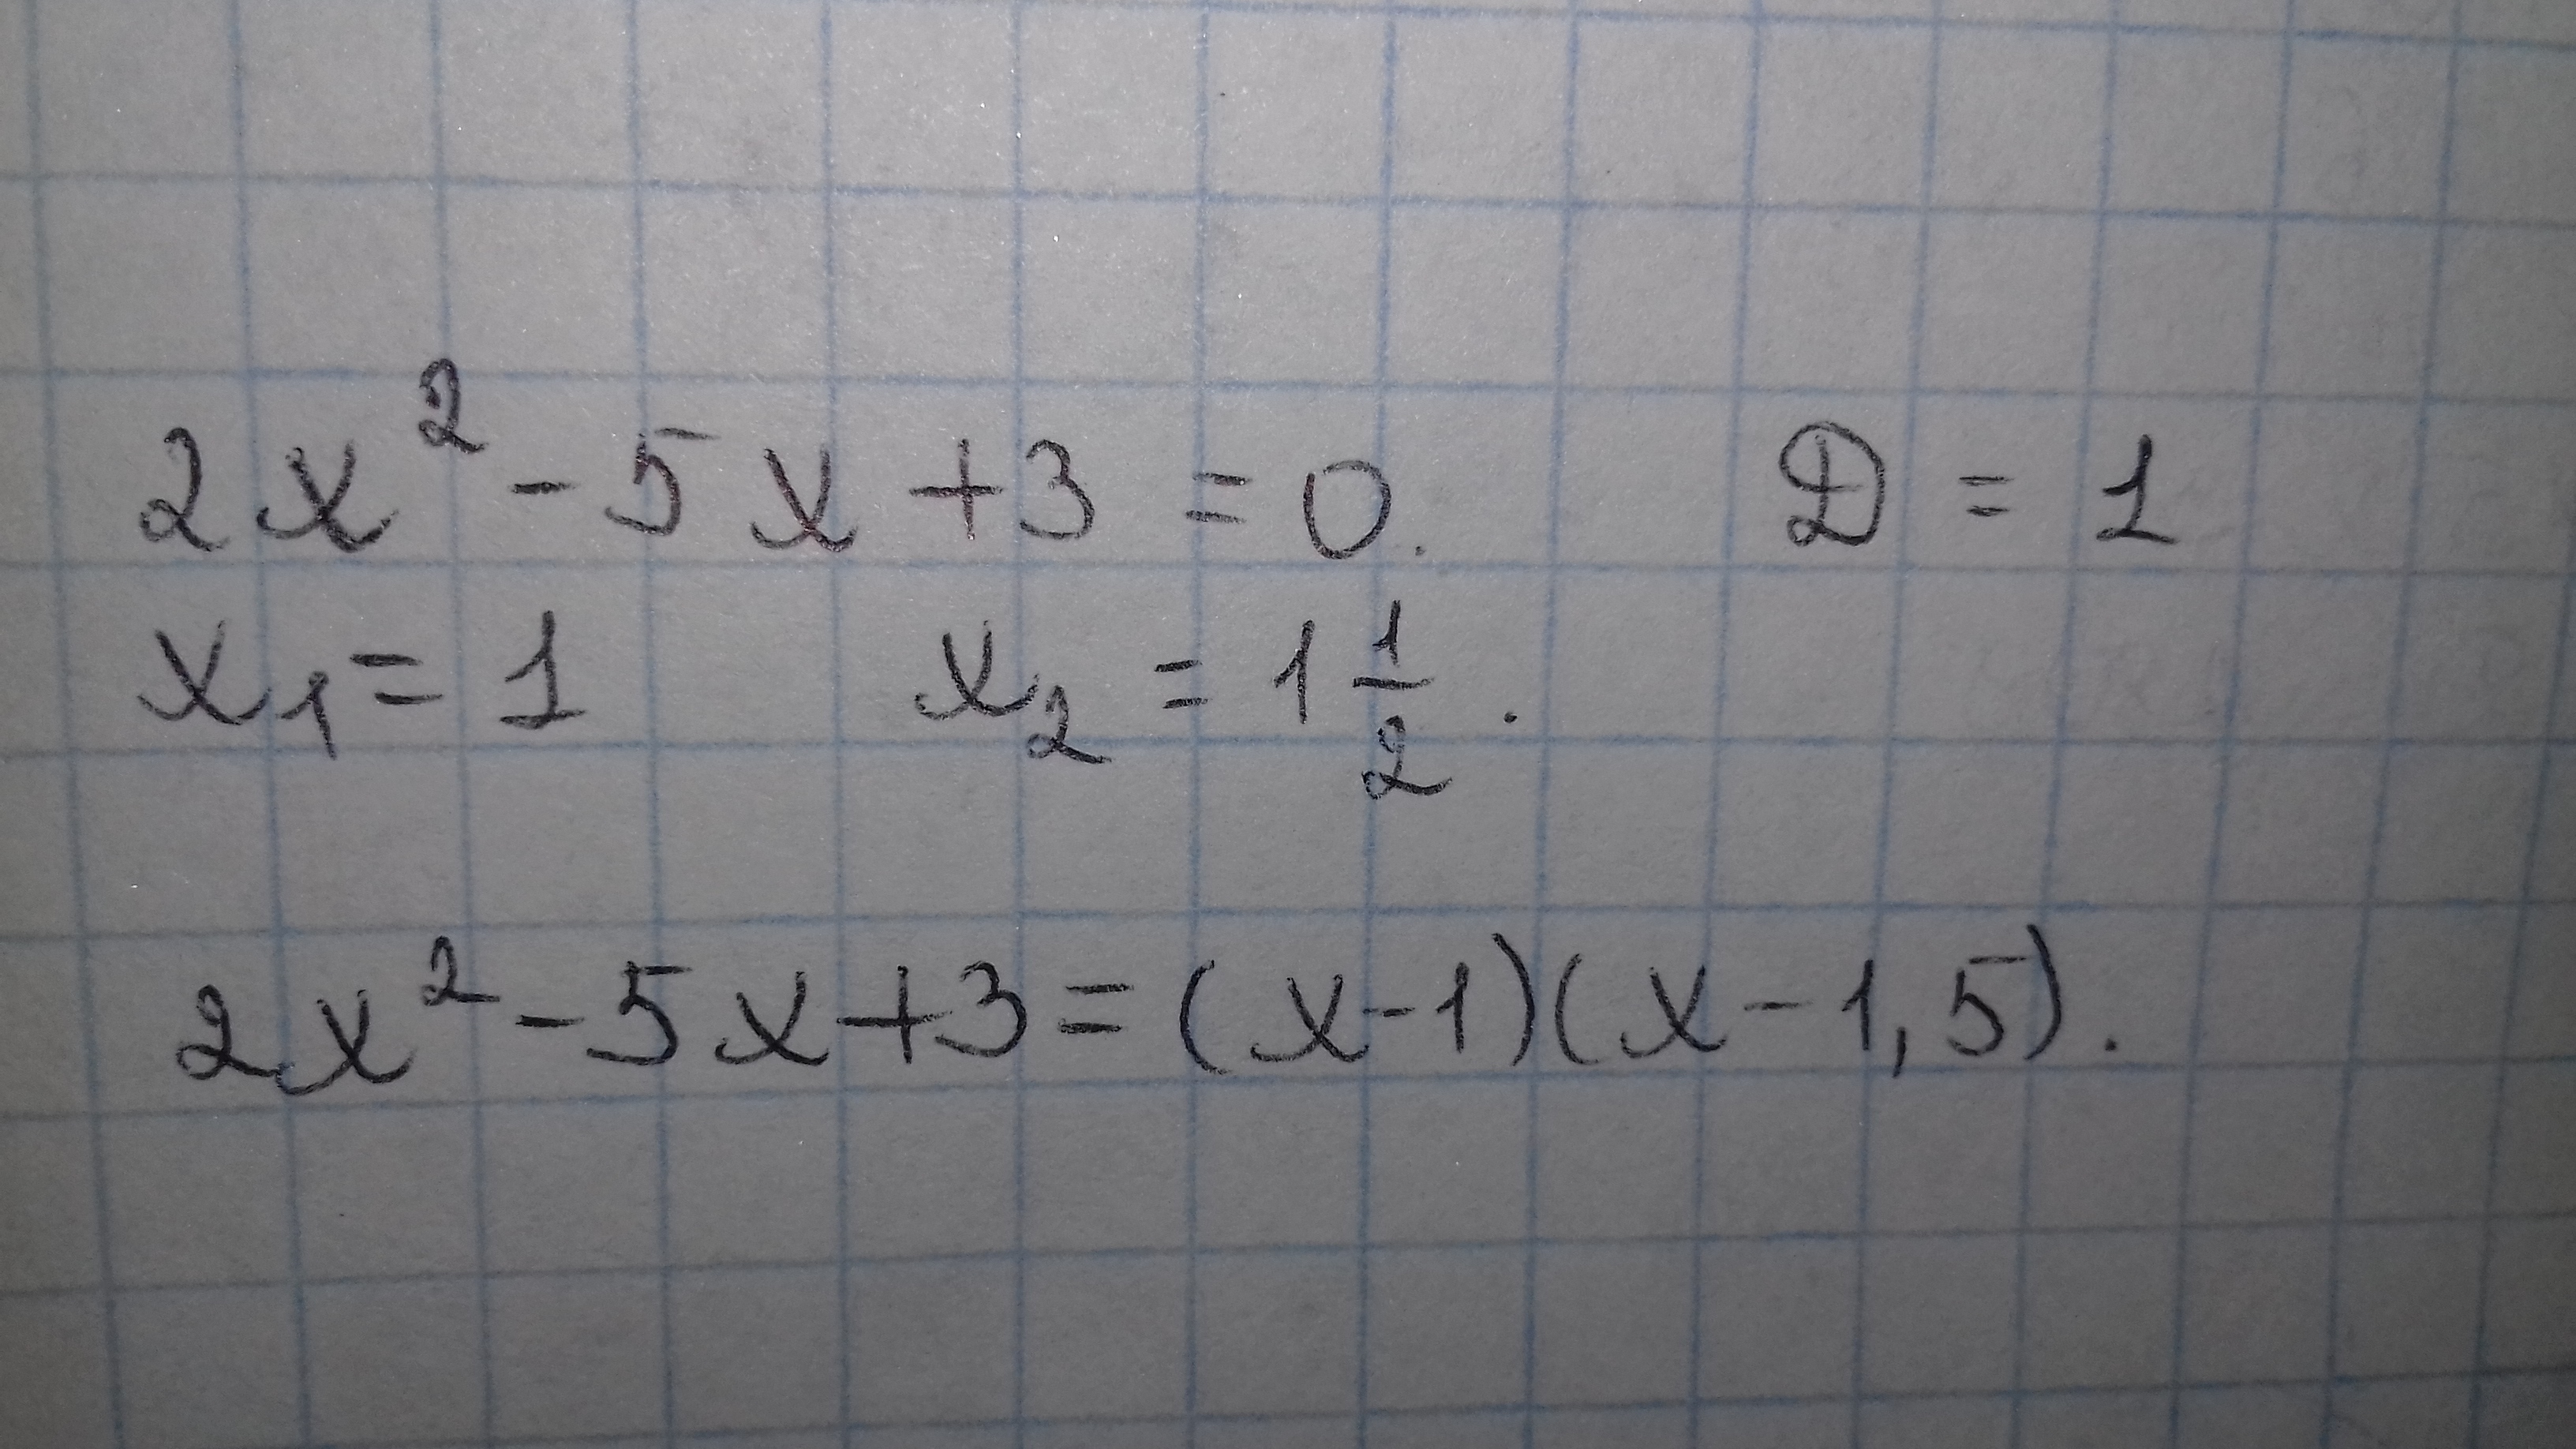 2x² - 5x + 3 = 0. D = 1
x₁ = 1 x₂ = 1 1/2.
2x² - 5x + 3 = (x - 1)(x - 1,5).